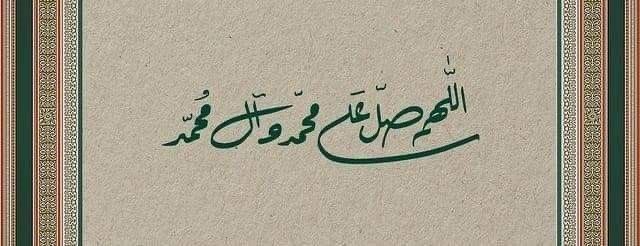 اللّٰهم صلّ علی محمّد وآل مُحمّد